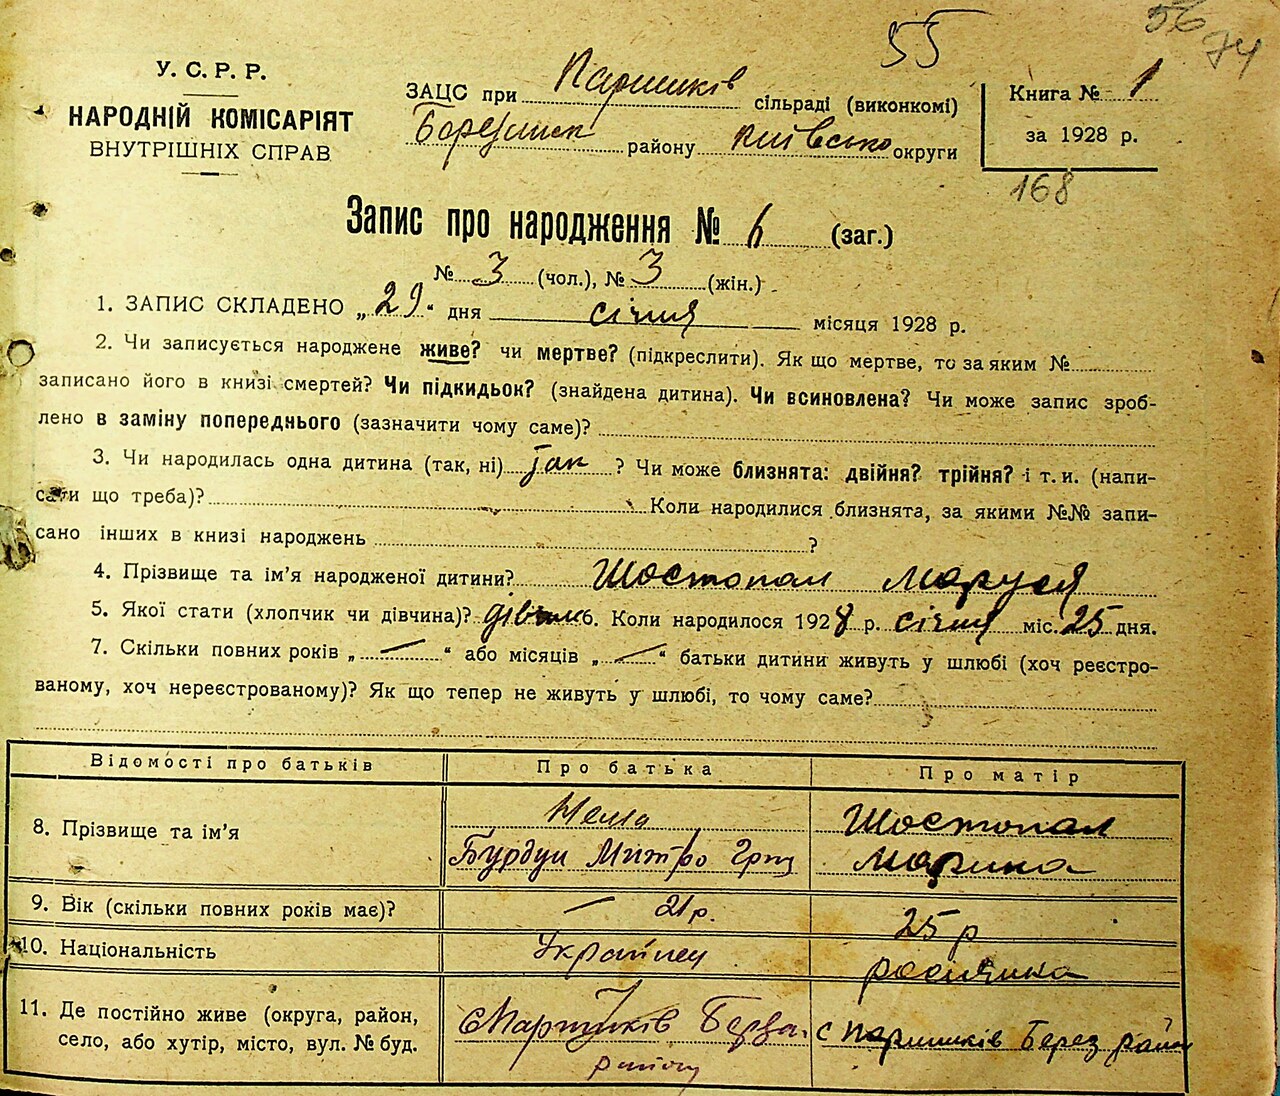 55
56
74
У. С. Р. Р.
НАРОДНІЙ КОМІСАРІЯТ
ВНУТРІШНІХ СПРАВ
ЗАЦС при Паришків сільраді (виконкомі)
Березанск району Київсько округи
Книга № 1
за 1928 р.
168
Запис про народження № 6 (заг.)
№ 3 (чол.), № 3 (жін.)
1. ЗАПИС СКЛАДЕНО „29" дня січня місяця 1928 р.
2. Чи записується народжене живе? чи мертве? (підкреслити). Як що мертве, то за яким №
записано його в книзі смертей? Чи підкидьок? (знайдена дитина). Чи всиновлена? Чи може запис зроб-
лено в заміну попереднього (зазначити чому саме)?
3. Чи народилась одна дитина (так, ні) так ? Чи може близнята: двійня? трійня? і т. и. (напи-
сати що треба)? Коли народилися близнята, за якими №№ запи-
сано інших в книзі народжень ?
4. Прізвище та ім'я народженої дитини? Шостопал Маруся
5. Якої стати (хлопчик чи дівчина)? 6. Коли народилося 1928 р. січня міс. 25 дня.
7. Скільки повних років „ — " або місяців „ — " батьки дитини живуть у шлюбі (хоч реєстро-
ваному, хоч нереєстрованому)? Як що тепер не живуть у шлюбі, то чому саме?
Відомості про батьків Про батька Про матір
8. Прізвище та ім'я Нема Шостопал
Бурдун Митро Григ Марина
9. Вік (скільки повних років має)? — 21 р. 25 р
10. Національність Українец
11. Де постійно живе (округа, район, с Паришків с Паришків Берез район
село, або хутір, місто, вул. № буд. району